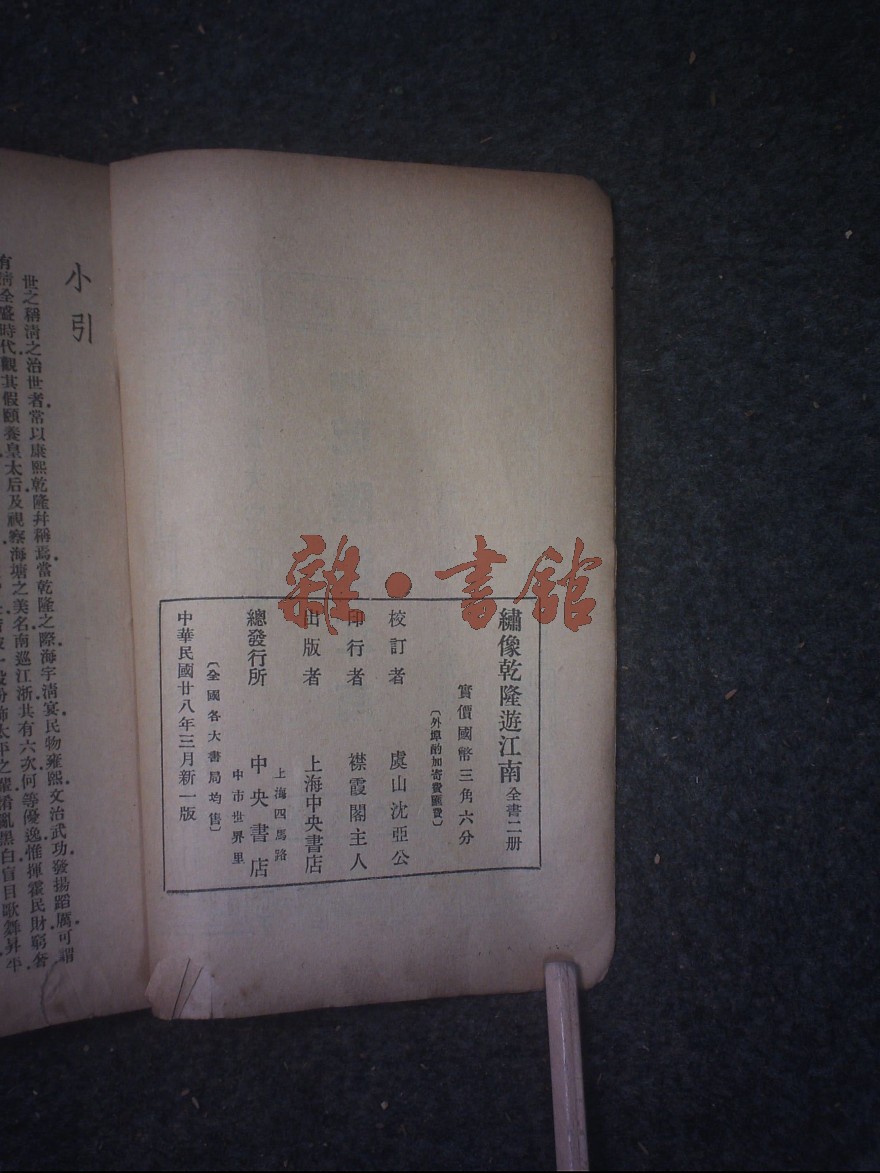 繡像乾隆遊江南 全書二册
實價國幣三角六分
〔外埠酌加寄費匯費〕
校訂者 虞山沈亞公
印行者 襟霞閣主人
出版者 上海中央書店
總發行所 中央書店
上海四馬路
中市世界里
〔全國各大書局均售〕
中華民國廿八年三月新一版
雜·書館
小引
世之稱淸之治世者.常以康熙乾隆幷稱焉.當乾隆之際.海宇淸宴.民物雍熙.文治武功.發揚蹈厲.可謂
有淸全盛時代.觀其假頤養皇太后及視察海塘之美名.南巡江浙.共有六次.何等優逸.惟揮霍民財.窮奢
太平之輩.淆亂黑白.盲目歌舞昇平.